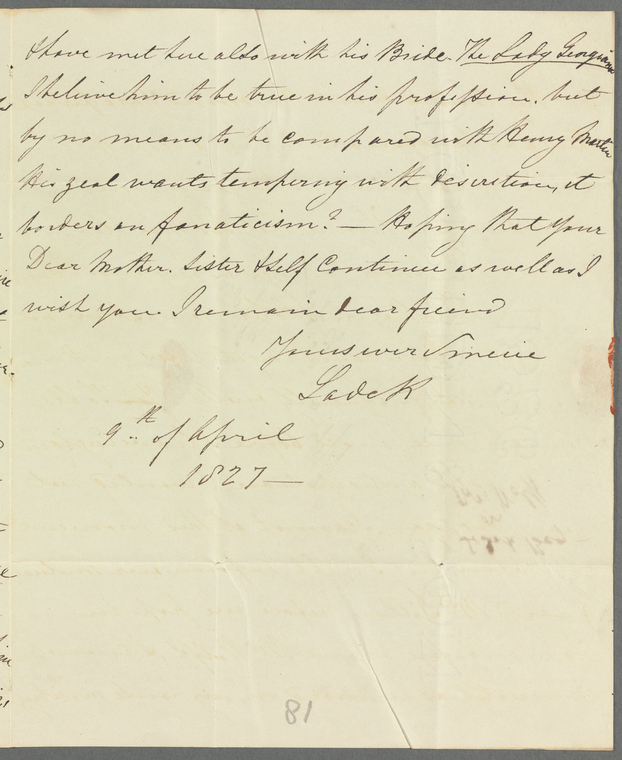 I have met here also with his Bride The Lady Georgiana
I believe him to be true in his profession. but
by no means to be compared with Henry Martin
His zeal wants tempering with discretion, it
borders on fanaticism? — Hoping that your
Dear Mother. Sister & Self Continue as well as I
wish you. I remain dear friend
Yours ever Sincere
9th of April
1827 —
81